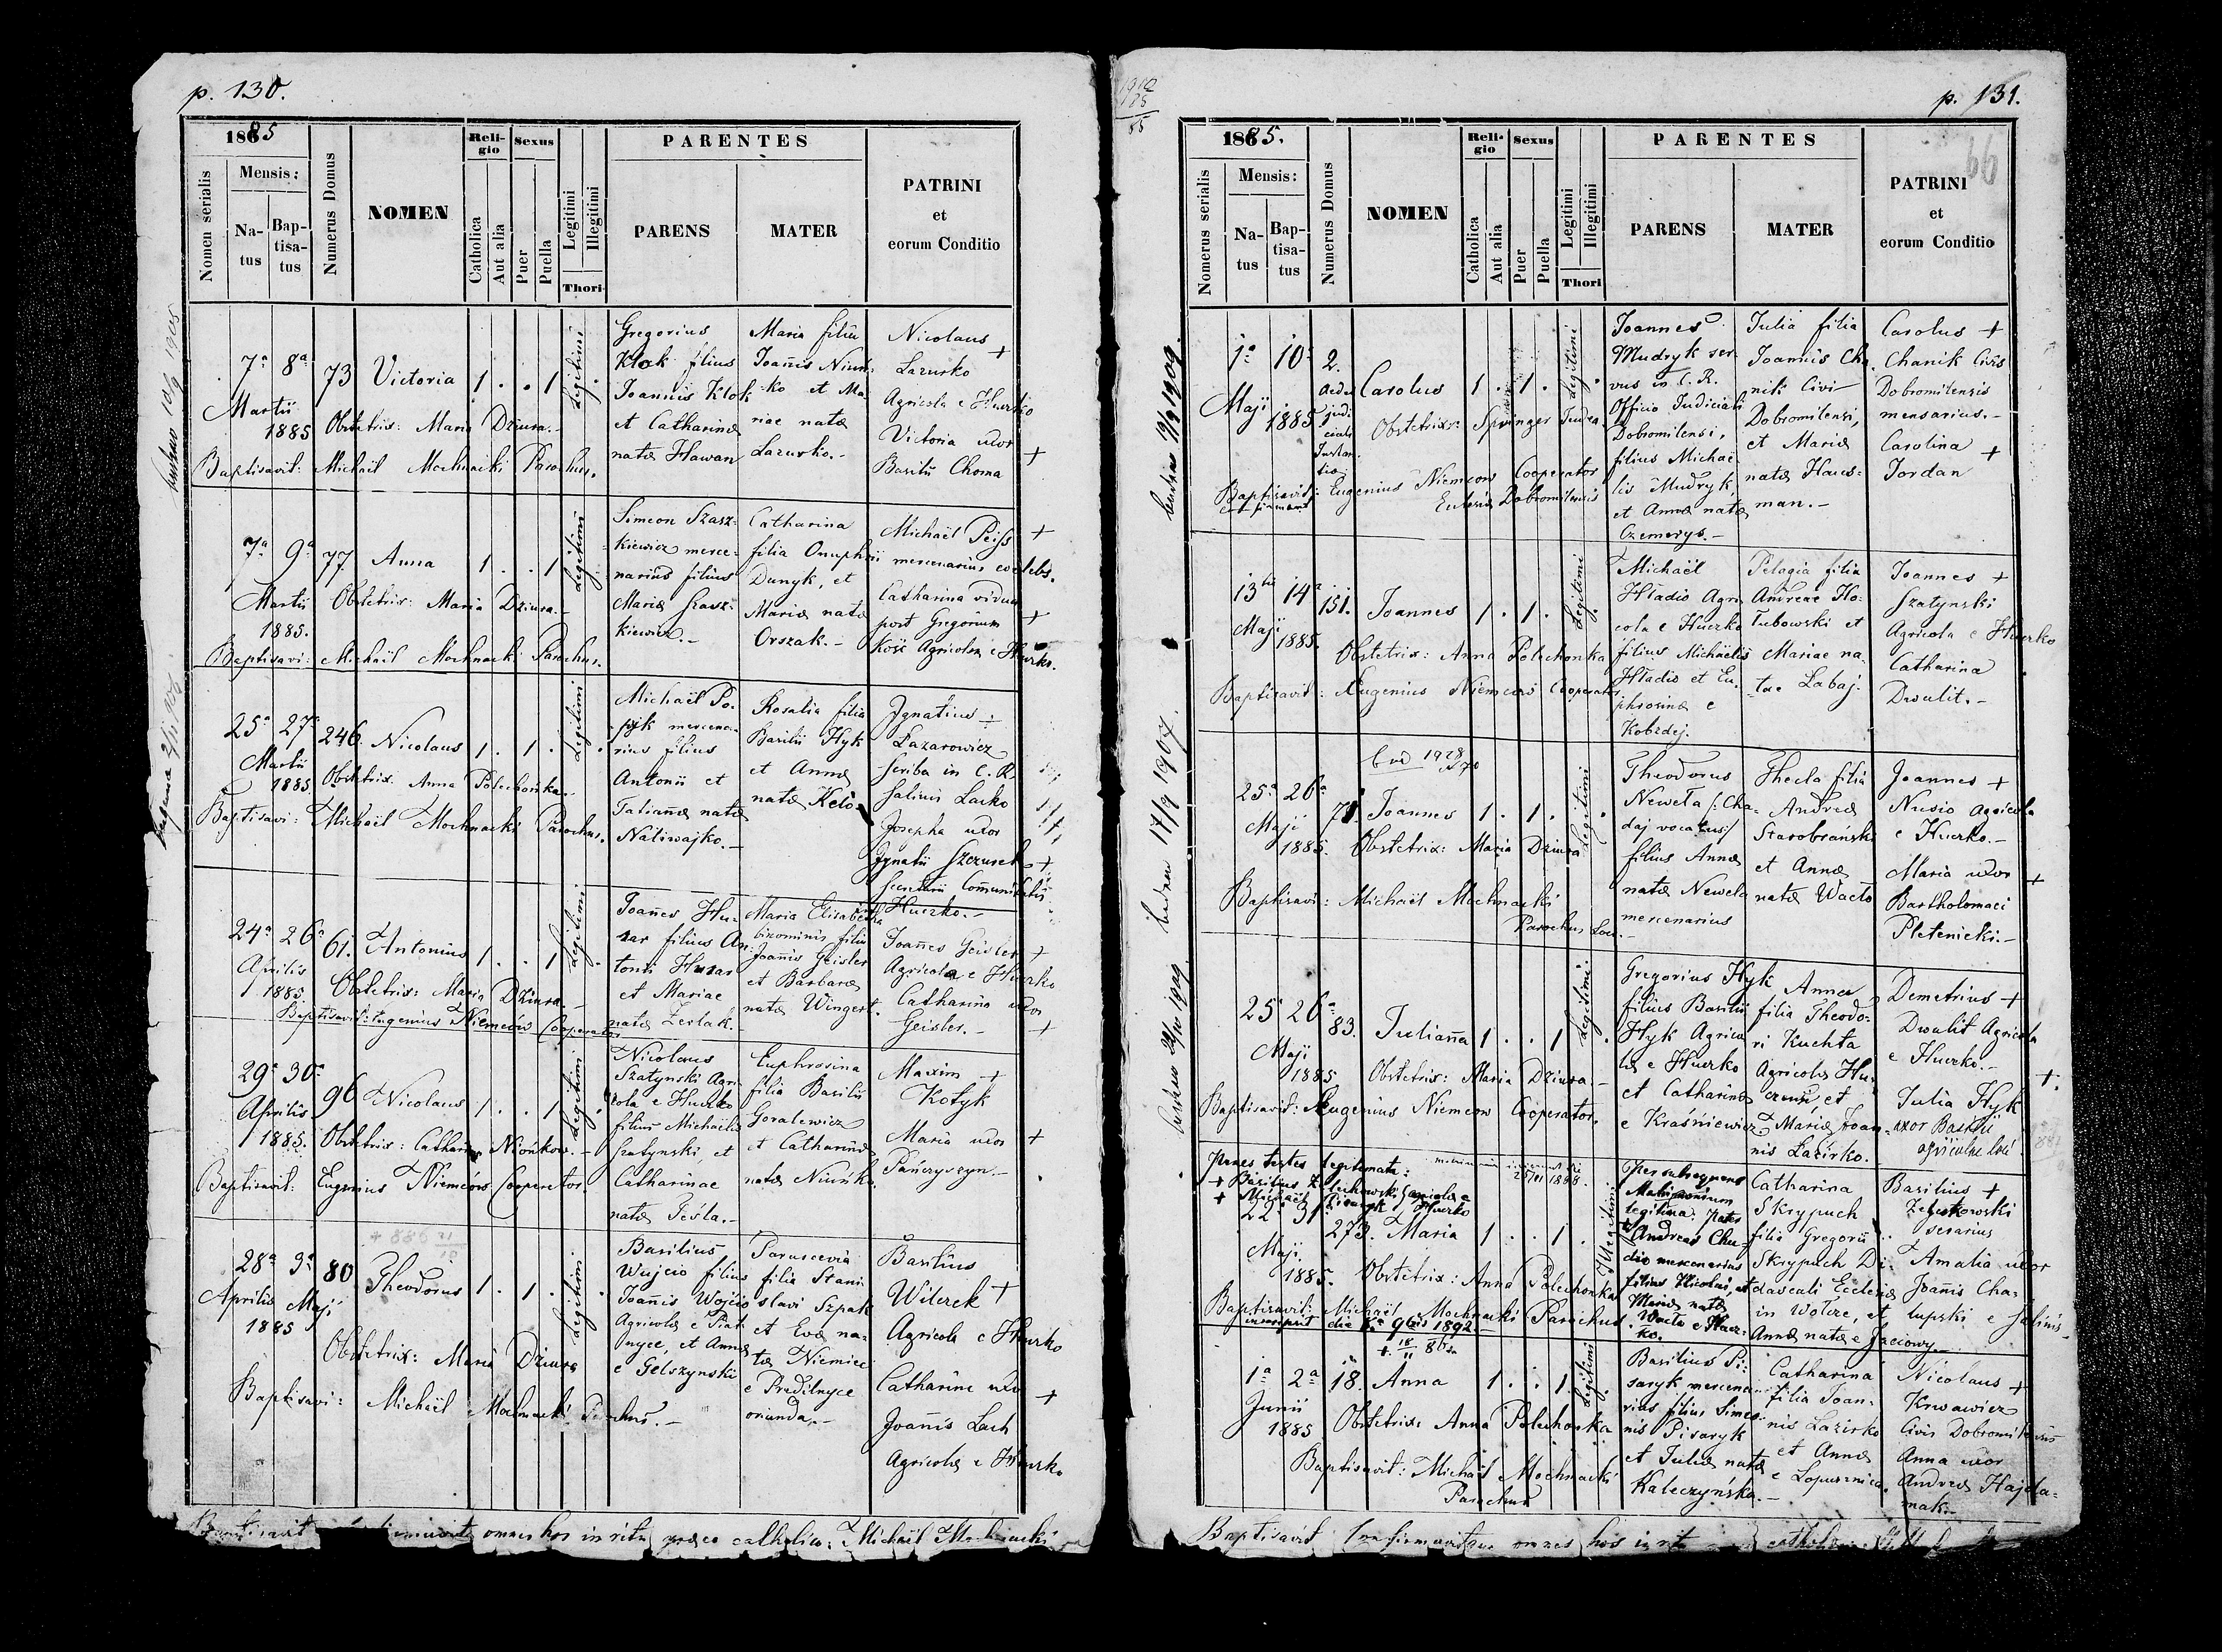 p. 130.
1885
Nomen serialis
Mensis:
Na-
tus
Bap-
tisa-
tus
Numerus Domus
NOMEN
Reli-
gio
Catholica
Aut alia
Sexus
Puer
Puella
Legitimi
Illegitimi
Thori
PARENTES
PARENS
MATER
PATRINI
et
eorum Conditio
7a 8a
Martii
1885
73
Victoria
1 . . 1
Legitimi
Obstetrix: Maria Dziura.-
Baptisavit: Michaël Mochnacki Parochus.
Gregorius
Klok filius
Joannis Klok
et Catharinæ
natæ Hawan
Maria filia
Joannis Niuń-
ko et Ma-
riae natæ
Lazurko.-
Nicolaus +
Lazurko
Agricola e Huczko
Victoria uxor
Basilii Choma +
7a 9a
Martii
1885.
77
Anna
1 . . 1
Legitimi
Obstetrix: Maria Dziura.-
Baptisavi: Michaël Mochnacki Parochus.
Simeon Szasz-
kiewicz merce-
narius filius
Mariæ Szasz-
kiewicz.-
Catharina
filia Onuphrii
Dunyk, et
Mariæ natæ
Orszak.-
Michaël Peiss +
mercenarius coelebs.
Catharina vidua
post Gregorium +
Kość Agricolam e Huczko.
25a 27a
Martii
1885
246.
Nicolaus
1 . 1 .
Legitimi
Obstetrix: Anna Polechońka.-
Baptisavi: Michaël Mochnacki Parochus.
Michaël Po-
pyk mercena-
rius filius
Antonii et
Tatiannæ natæ
Naliwajko.-
Rosalia filia
Basilii Hyk
et Annæ
natæ
Ignatius +
Lazarowicz
scriba in C. R.
Salinis Lacko
Josepha uxor
Ignatii Szczurek +
Communitatis
Huczko.-
24a 26a
Aprilis
1885.
61.
Antonius
1 . . 1
Legitimi
Obstetrix: Maria Dziura.-
Baptisavit: Eugenius Niemców Cooperator
Joannes Hu-
zar filius An-
tonii Huzar
et Mariae
natæ Zerlak.-
Maria Elisabetha
binominis filia
Joannis Geisler
et Barbaræ
natæ Wingert.
Joannes Geisler +
Agricola e Huczko
Catharina uxor
Geisler.- +
29a 30a
Aprilis
1885.
96
Nicolaus
1 . . 1
Legitimi
Obstetrix: Catharina Niońkow.-
Baptisavit: Eugenius Niemców Cooperator.
Nicolaus
Szatynski Agri-
cola e Huczko
filius Michaelis
Szatynski, et
Catharinae
natæ Tesla.-
Euphrosina
filia Basilii
Goralewicz
et Catharinæ
natæ Niuńko.
Maxim +
Kotyk
Maria uxor +
Panczyszyn.-
28a 3a
Aprilis Maji
1885
80
Theodorus
1 . 1 .
Legitimi
Obstetrix: Maria Dziura
Baptisavi: Michaël Mochnacki Parochus.-
Basilius
Wujcio filius
Joannis Wojcio
Agricolæ e Piat-
nyce, et Annæ
e Gelszynski
Parascevia
filia Stani-
slavi Szpak
et Evæ na-
tæ Niemiec
e Predilnyce
oriunda.-
Basilius
Witerek +
Agricola e Huczko
Catharina uxor +
Joannis Lach
Agricolæ e Huczko
Baptisavit omnes hos in ritu græco catholico: Michaël Mochnacki
p. 131.
66
1885.
Nomerus serialis
Mensis:
Na-
tus
Bap-
tisa-
tus
Numerus Domus
NOMEN
Reli-
gio
Catholica
Aut alia
Sexus
Puer
Puella
Legitimi
Illegitimi
Thori
PARENTES
PARENS
MATER
PATRINI
et
eorum Conditio
1a 10a
Maji
1885
2.
Carolus
1 . 1 .
Legitimi
Obstetrix: Springer Judea
Baptisavit: Eugenius Niemców Cooperator
Dobromilensis
Joannes
Mudryk ser-
vus in C. R.
Officio Judiciali
Dobromilensi,
filius Michaë-
lis Mudryk,
et Annæ natæ
Czemerys.-
Julia filia
Joannis Cha-
nik Civi
Dobromilensi,
et Mariæ
natæ Haus-
man.-
Carolus +
Chanik Civis
Dobromilensis
mensarius.-
Carolina +
Jordan
13tia 14a
Maji
1885.
151.
Joannes
1 . 1 .
Legitimi
Obstetrix: Anna Polechonka
Baptisavit: Eugenius Niemców Cooperator
Michaël
Hladio Agri-
cola e Huczko
filius Michaëlis
Hladio et Eu-
phrosinæ e
Kobrdej.
Pelagia filia
Andreae Ho-
lubowski et
Mariae na-
tae Labaj.
Joannes +
Szatynski
Agricola e Huczko
Catharina
Dwulit.-
25a 26a
Maji
1885.
Joannes
1 . 1 .
Legitimi
Obstetrix: Maria Dziura
Baptisavi: Michaël Mochnacki
Parochus Loci.-
Theodorus
Neweta /: Cha-
daj vocatus/
filius Annæ
natæ Neweta
mercenarius
Thecla filia
Andreæ
Starobrański
et Annæ
natæ Wacło
Joannes +
Nusio Agricola
e Huczko.-
Maria uxor +
Bartholomaei
Pletenicki.-
25a 26a
Maji
1885
83.
Julianna
1 . . 1
Legitimi.
Obstetrix: Maria Dziura.-
Baptisavit: Eugenius Niemców Cooperator.
Gregorius Hyk
filius Basilii
Hyk Agrico-
læ e Huczko
et Catharinæ
e Kraśniewicz
Anna
filia Theodo-
ri Kuchta
Agricolæ Hu-
czensi, et
Mariæ Joan-
nis Lazirko.
Demetrius +
Dwulit Agricola
e Huczko.-
Julia Hyk +
uxor Basilii
agricolæ loci
Penes testes legitimata:
22a 31a
Maji
1885.
273.
Maria
1 . . 1
Illegitimi
Obstetrix: Anna Polechonka
Baptisavit: Michaël Mochnacki Parochus
Per subsequens
Matrimonium
legitima. Pater
Andreas Chu-
dio mercenarius
filius Nicolai, et
Mariæ natæ
Wacło e Hucz-
ko.
Catharina
Skrypuch
filia Gregorii
Skrypuch Di-
dascali Ecclesiæ
in Wołcze, et
Annæ natæ e
Basilius +
Zeliskowski
Amalia uxor
Joannis Cha-
lupski e Salinis.-
1a 2a
Junii
1885
18.
Anna
1 . . 1
Legitimi
Obstetrix: Anna Polechonka
Baptisavit: Michaël Mochnacki
Parochus
Basilius Pi-
saryk mercena-
rius filius Simeo-
nis Pisaryk
et Juliæ natæ
Kaleczyńska.-
Catharina
filia Joan-
nis Lazirko
et Annæ
e Lopusznica.
Nicolaus +
Krwawicz
Civis Dobromilensis
Anna uxor
Andreæ Hajda-
mak.
Baptisavit Confirmavitque omnes hos in ritu